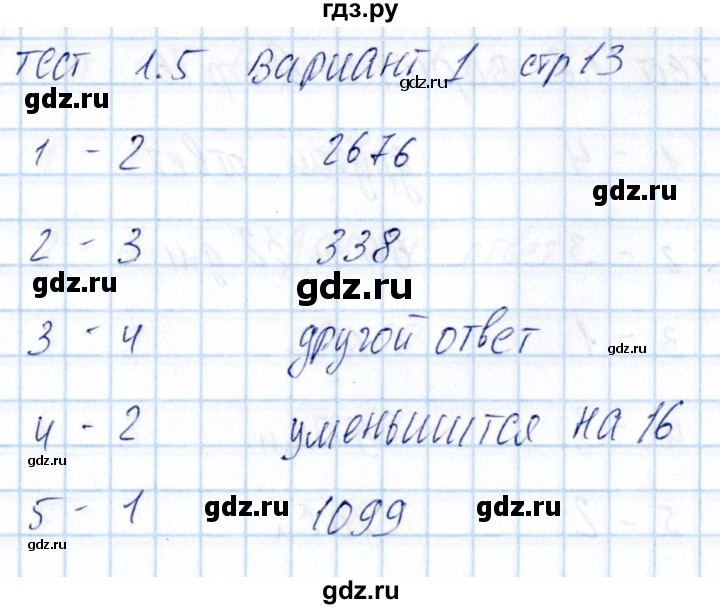 гдз.ру
тест 1.5 вариант 1 стр 13
gdz.ru
gdz.ru
1 - 2 2676
gdz.ru
2 - 3 338
gdz.ru
gdz.ru
3 - 4 другой ответ
gdz.ru
4 - 2 уменьшится на 16
gdz.ru
5 - 1 1099
gdz.ru
gdz.ru
gdz.ru
gdz.ru